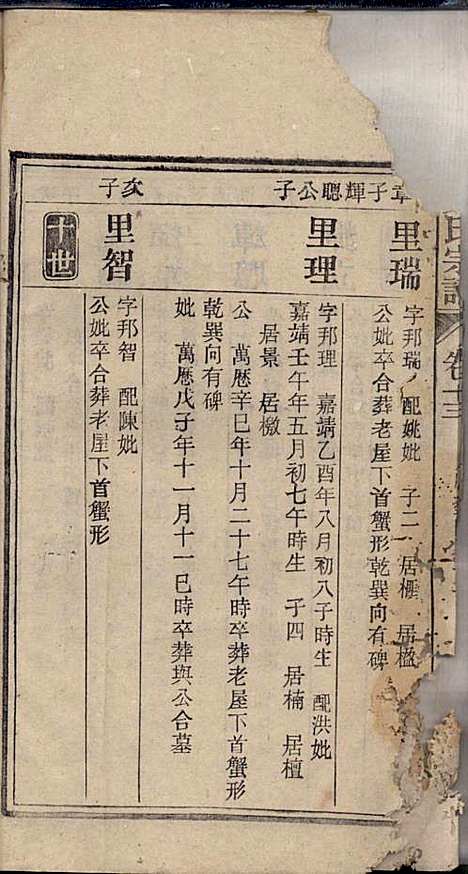 氏宗譜
卷十三
章子輝聰公子
次子
里瑞
字邦瑞 配姚妣 子二 居櫃 居楹
公妣卒合葬老屋下首蟹形乾巽向有碑
里理
字邦理 嘉靖乙酉年八月初八子時生 配洪妣
嘉靖壬午年五月初七午時生 子四 居楠 居檀
居景 居檄
公 萬歷辛巳年十月二十七午時卒葬老屋下首蟹形
乾巽向有碑
妣 萬歷戊子年十一月十一巳時卒葬與公合墓
里智
字邦智 配陳妣
公妣卒合葬老屋下首蟹形
十世